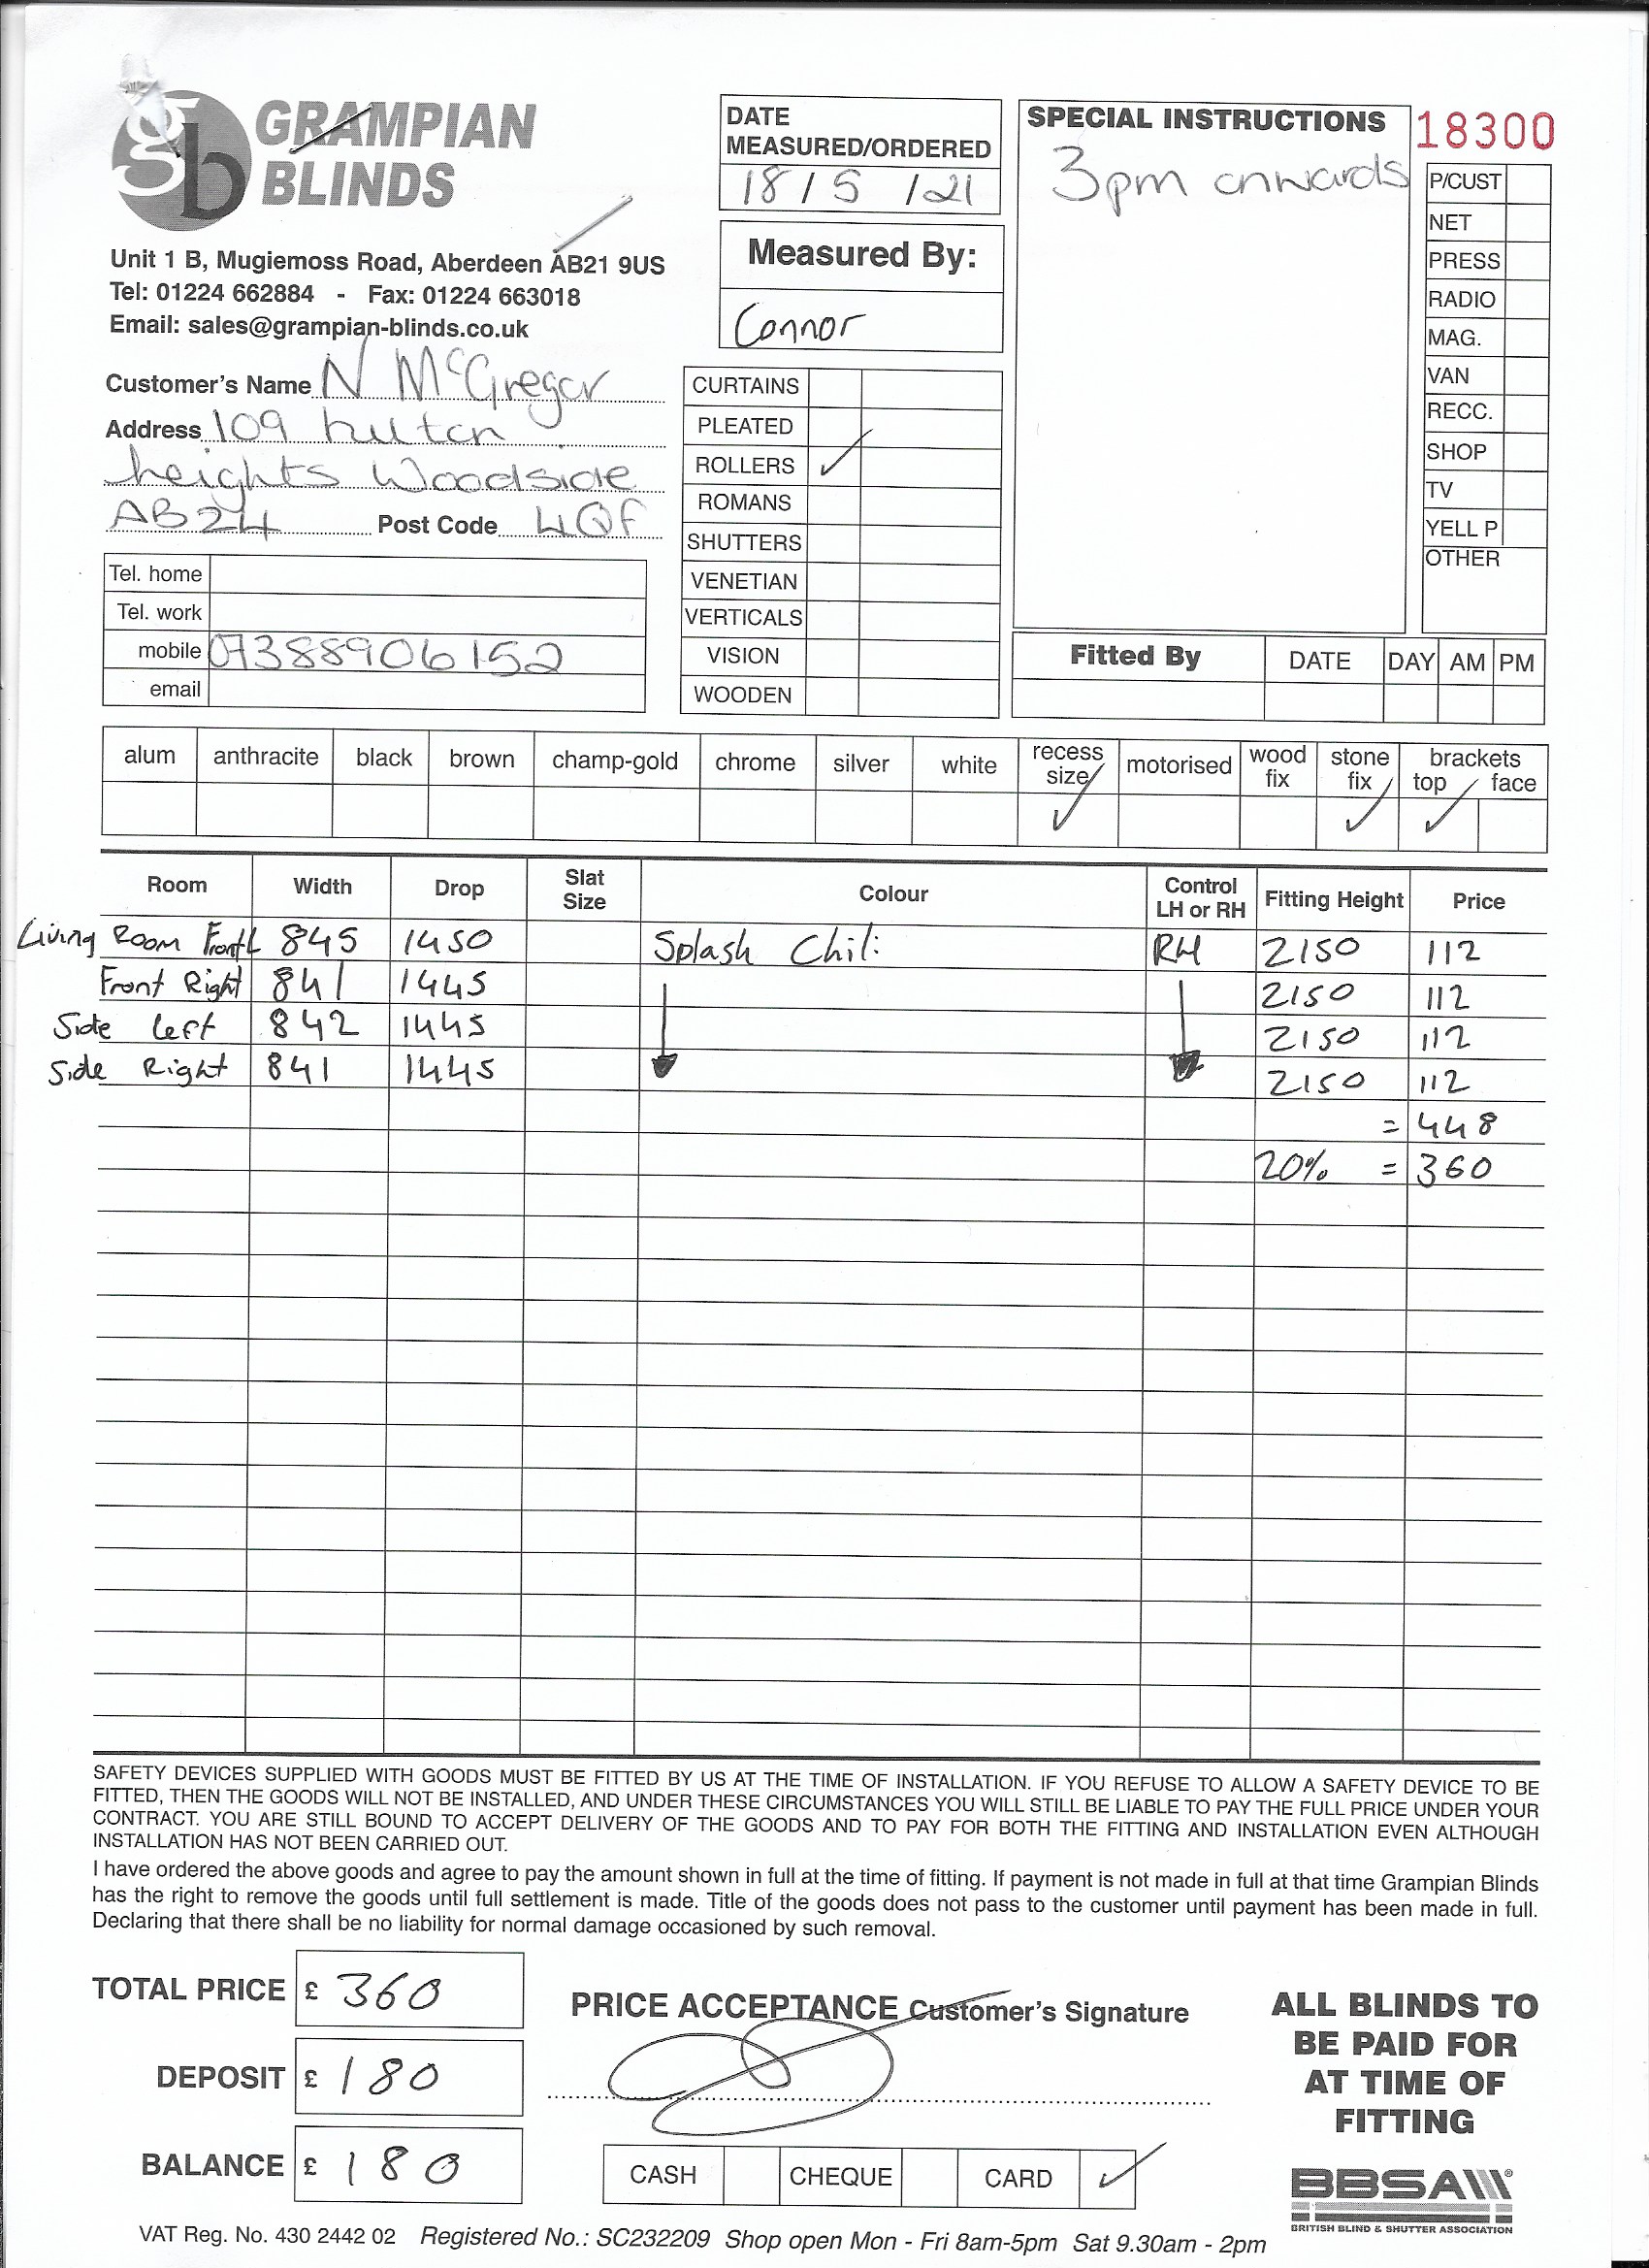 GRAMPIAN
BLINDS
Unit 1 B, Mugiemoss Road, Aberdeen AB21 9US
Tel: 01224 662884 - Fax: 01224 663018
Email: sales@grampian-blinds.co.uk
Customer's Name N McGregor
Address 109 hutcn
heights Woodside
AB24 Post Code 4QF
Tel. home
Tel. work
mobile 07388906152
email
DATE
MEASURED/ORDERED
18 / 5 / 21
Measured By:
Connor
CURTAINS
PLEATED
ROLLERS ✓
ROMANS
SHUTTERS
VENETIAN
VERTICALS
VISION
WOODEN
SPECIAL INSTRUCTIONS
3pm onwards
18300
P/CUST
NET
PRESS
RADIO
MAG.
VAN
RECC.
SHOP
TV
YELL P
OTHER
Fitted By DATE DAY AM PM
alum anthracite black brown champ-gold chrome silver white recess size motorised wood fix stone fix brackets top face
✓ ✓ ✓
Room Width Drop Slat Size Colour Control LH or RH Fitting Height Price
Living Room Front L 845 1450 Splash Chili RH 2150 112
Front Right 841 1445 2150 112
Side Left 842 1445 2150 112
Side Right 841 1445 2150 112
= 448
20% = 360
SAFETY DEVICES SUPPLIED WITH GOODS MUST BE FITTED BY US AT THE TIME OF INSTALLATION. IF YOU REFUSE TO ALLOW A SAFETY DEVICE TO BE
FITTED, THEN THE GOODS WILL NOT BE INSTALLED, AND UNDER THESE CIRCUMSTANCES YOU WILL STILL BE LIABLE TO PAY THE FULL PRICE UNDER YOUR
CONTRACT. YOU ARE STILL BOUND TO ACCEPT DELIVERY OF THE GOODS AND TO PAY FOR BOTH THE FITTING AND INSTALLATION EVEN ALTHOUGH
INSTALLATION HAS NOT BEEN CARRIED OUT.
I have ordered the above goods and agree to pay the amount shown in full at the time of fitting. If payment is not made in full at that time Grampian Blinds
has the right to remove the goods until full settlement is made. Title of the goods does not pass to the customer until payment has been made in full.
Declaring that there shall be no liability for normal damage occasioned by such removal.
TOTAL PRICE £ 360
DEPOSIT £ 180
BALANCE £ 180
PRICE ACCEPTANCE Customer's Signature
CASH CHEQUE CARD ✓
ALL BLINDS TO
BE PAID FOR
AT TIME OF
FITTING
BBSA
BRITISH BLIND & SHUTTER ASSOCIATION
VAT Reg. No. 430 2442 02 Registered No.: SC232209 Shop open Mon - Fri 8am-5pm Sat 9.30am - 2pm